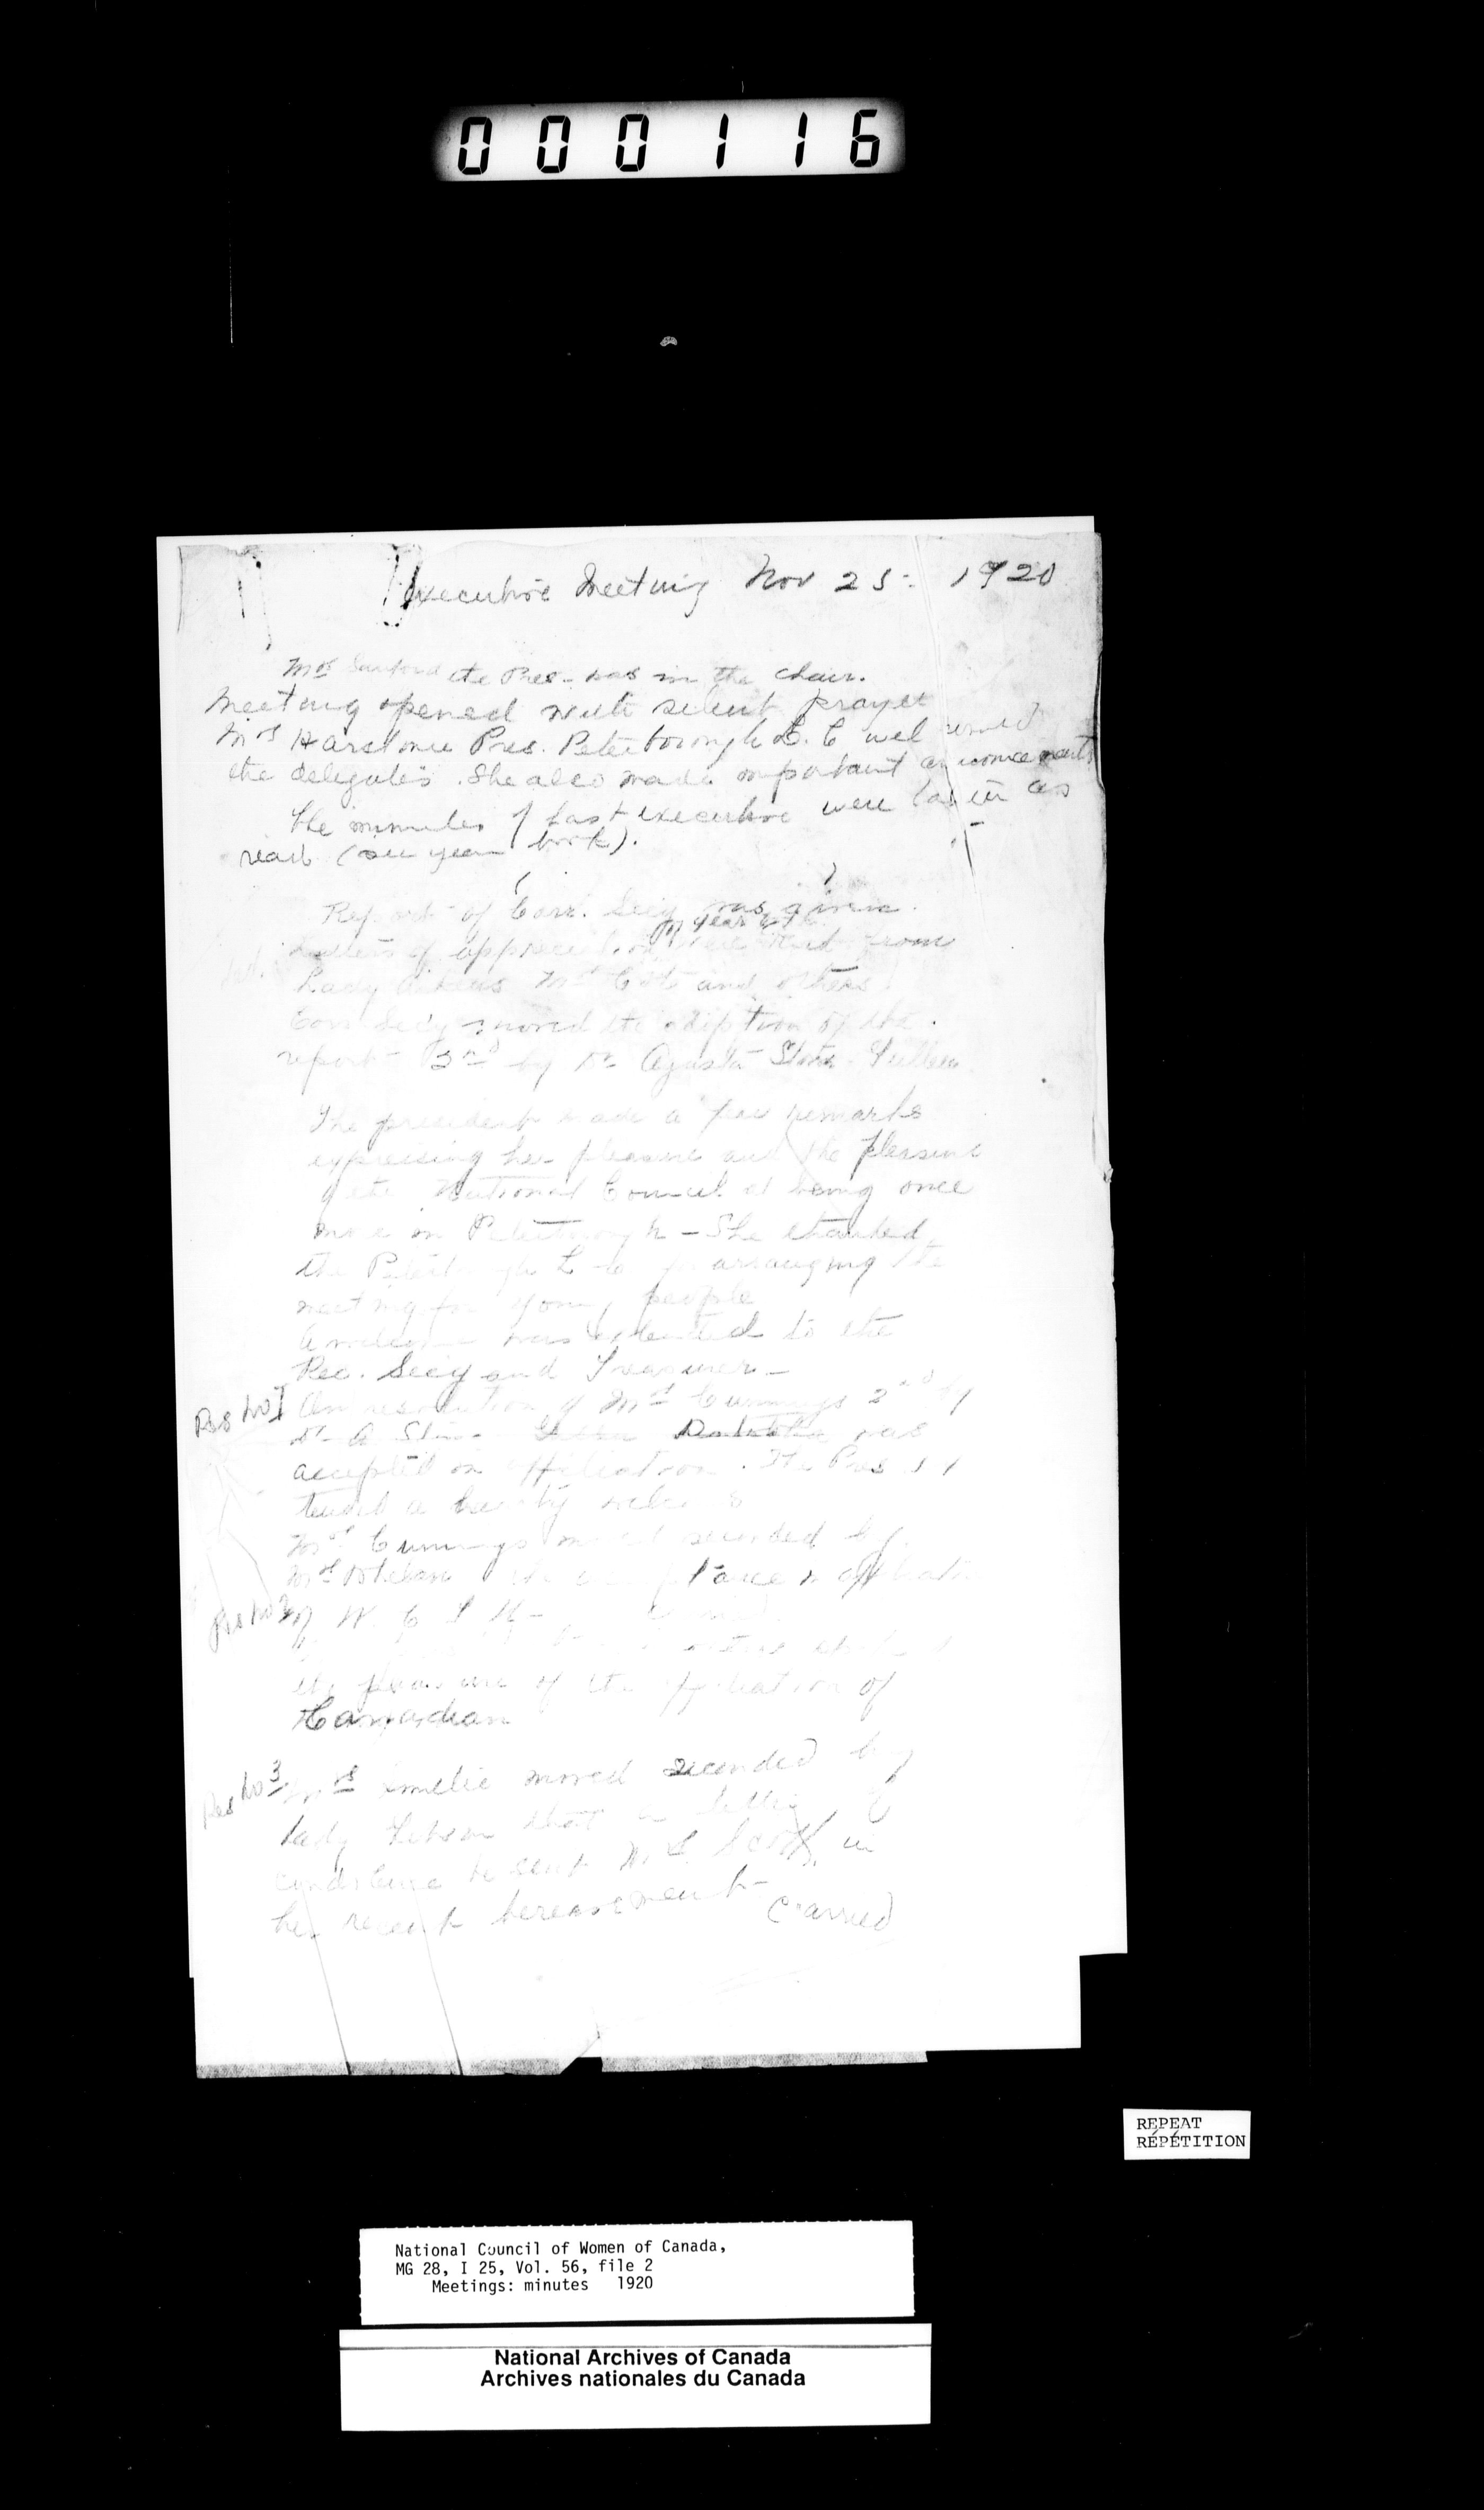 000116
Executive Meeting Nov 25 - 1920
Mrs Sanford the Pres - was in the chair.
Meeting opened with silent prayer
Mrs Harstone Pres. Peterborough L. C welcomed
the delegates. She also made important announcements
The minutes of last executive were taken as
read (see year book).
Report of Corr. Secy was given.
for year book
Letters of appreciation were read from
Lady Aikins Mrs and others
Corr Secy moved the adoption of the
report - 2nd by Dr Agusta Stowe - Gullen
The president made a few remarks
expressing her pleasure and the pleasure
of the National Council at being once
more in Peterborough - She thanked
the Peterborough L C for arranging the
meeting for young people
A welcome was extended to the
Rec. Secy and Treasurer -
Res No 1 On resolution of Mrs Cummings 2nd by
Dr A Stowe Gullen was
accepted in affiliation. The Pres
tened a hearty
Mrs Cummings moved seconded by
Mrs the acceptance in affiliation
Res No 2 of W. C T U -
the pleasure of the affiliation of
Canadian
Res No 3 Mrs Smellie moved seconded by
Lady Gibson that a letter of
condolence be sent Mrs Scott in
her recent bereavement -
Carried
REPEAT
RÉPÉTITION
National Council of Women of Canada,
MG 28, I 25, Vol. 56, file 2
Meetings: minutes 1920
National Archives of Canada
Archives nationales du Canada